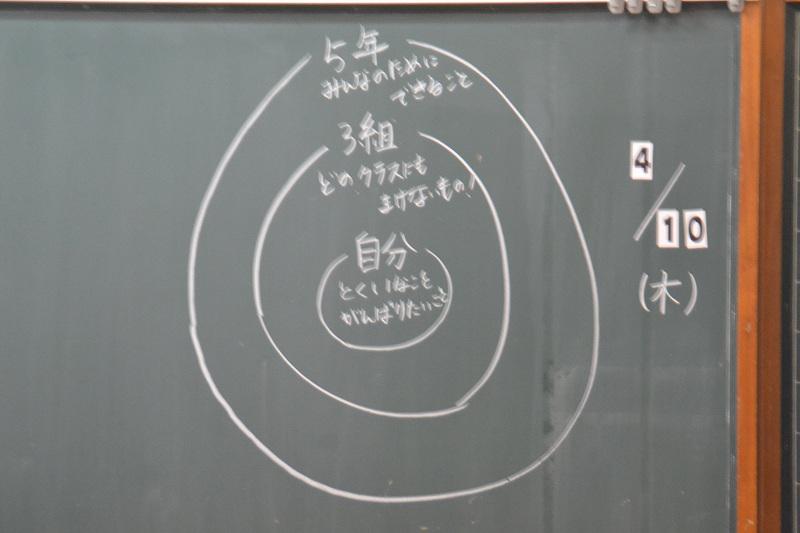 5年
みんなのために
できること
3組
どのクラスにも
まけないもの!
自分
とくいなこと
がんばりたいこと
4/10
(木)